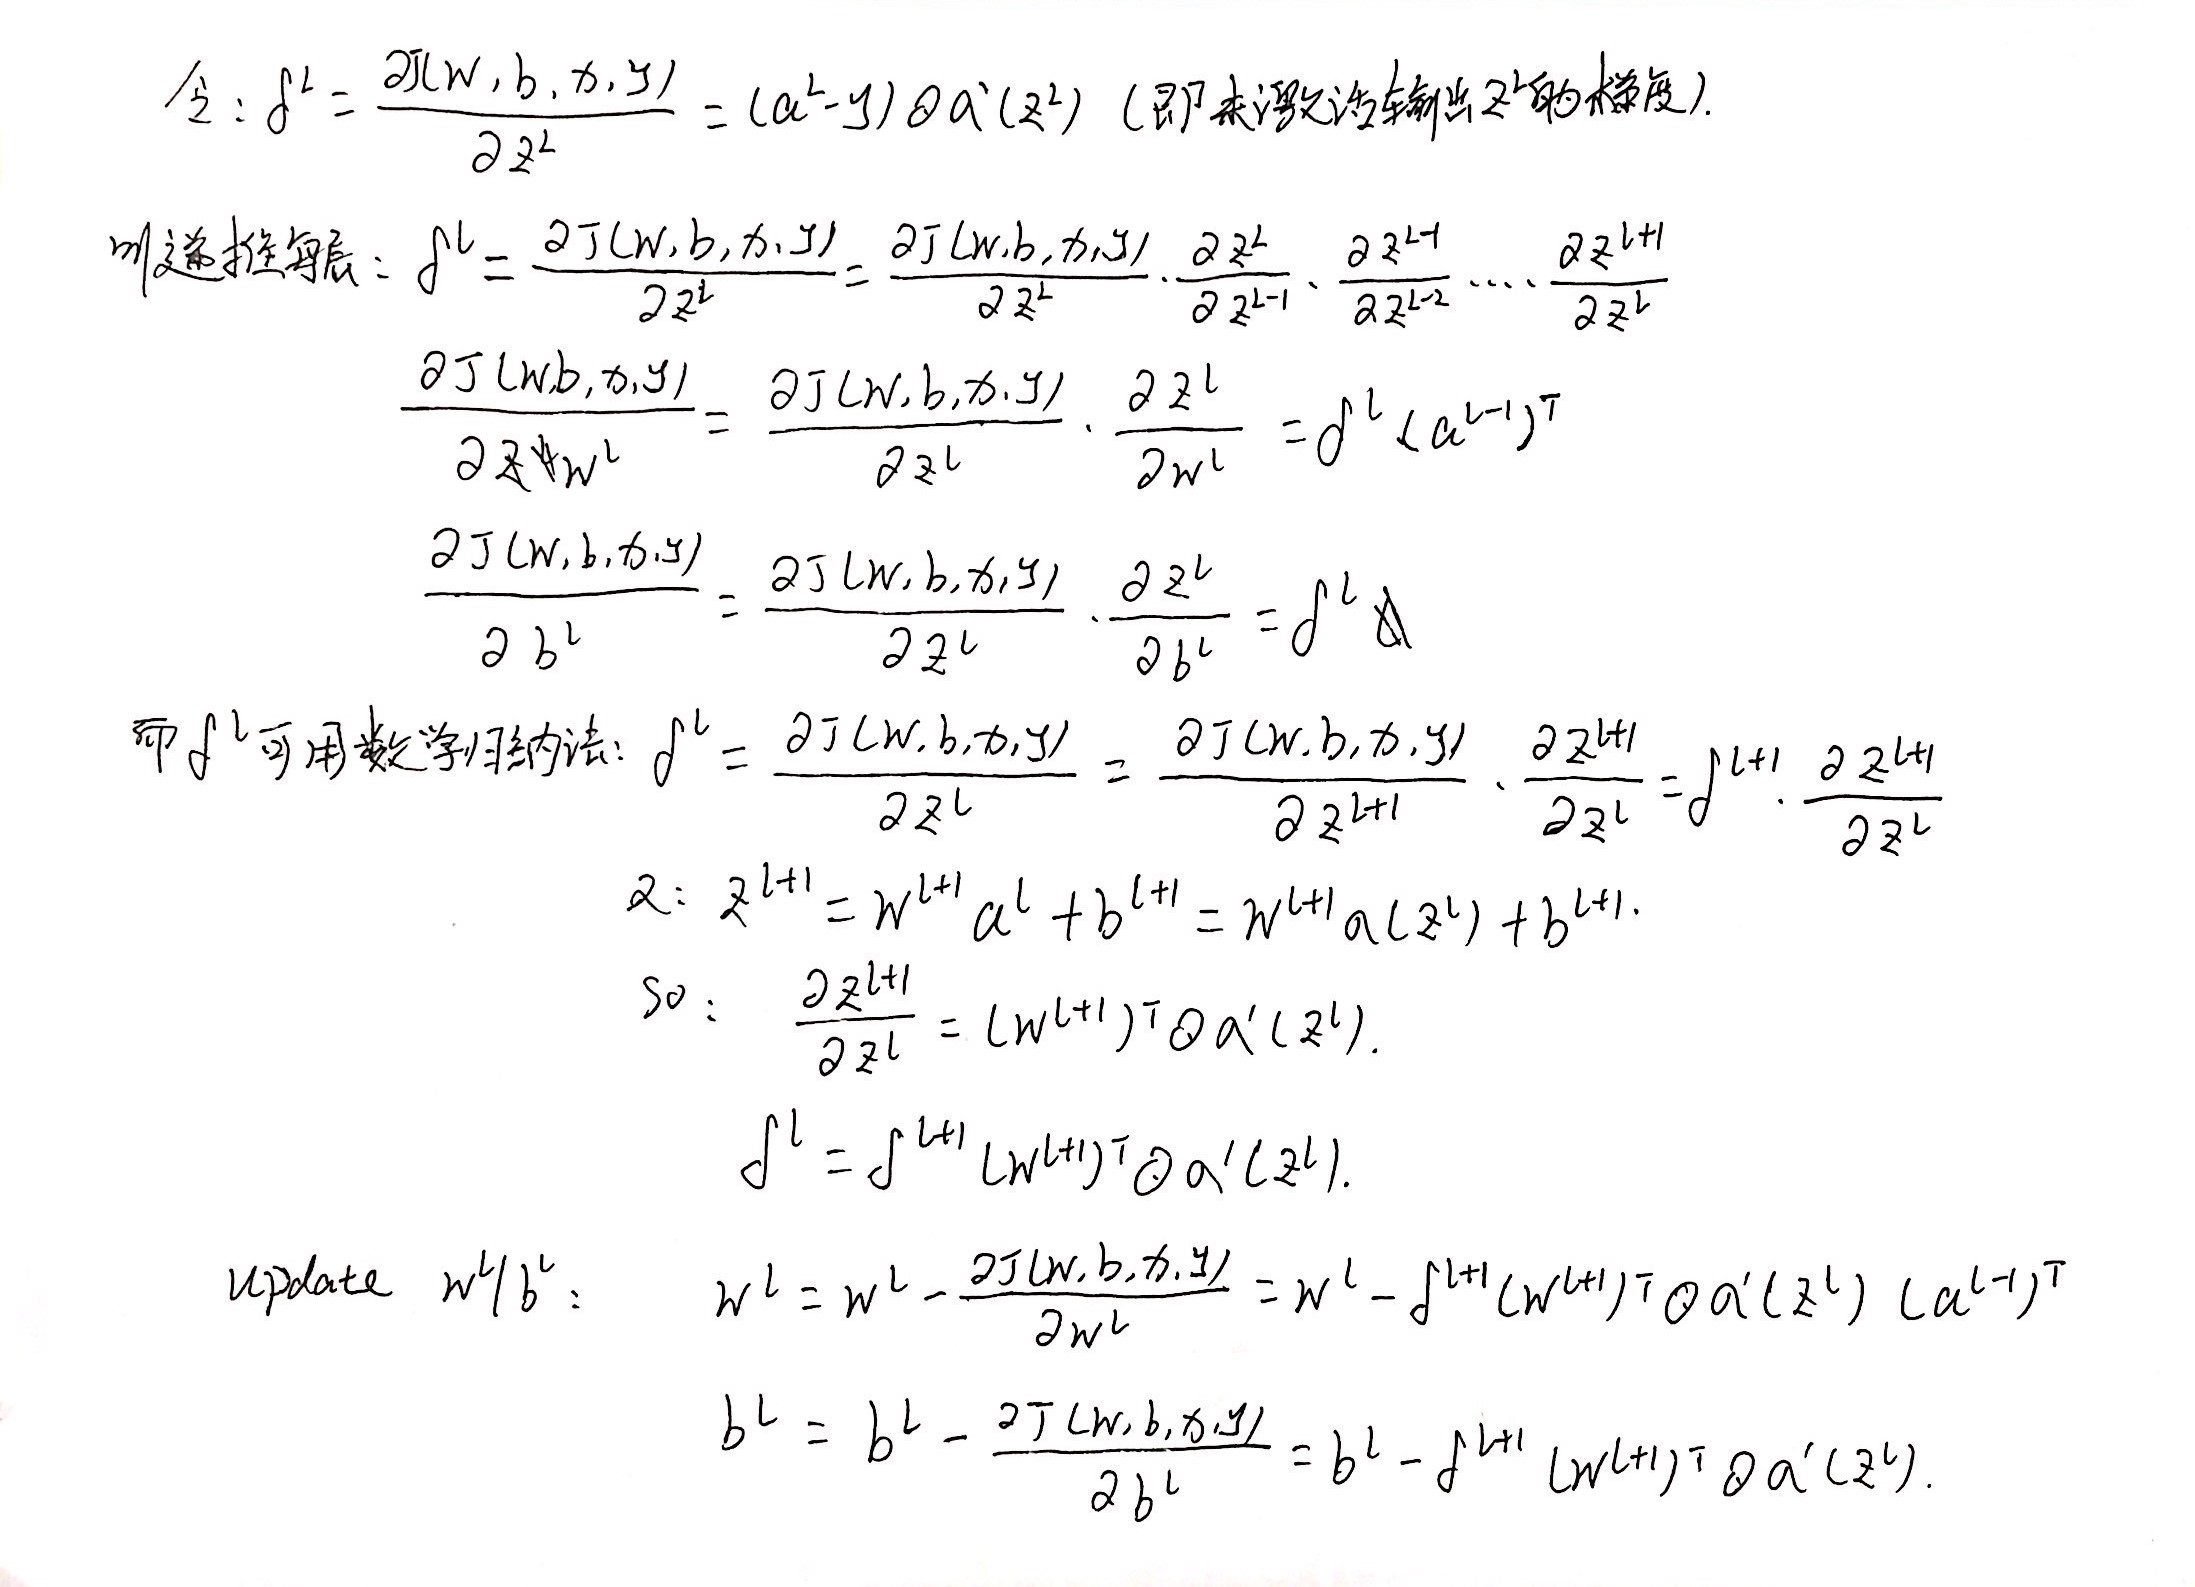 令: δ^L = ∂J(W,b,x,y)/∂z^L = (a^L-y)⊙a'(z^L) (即未激活输出z^L的梯度).
则递推每层: δ^l = ∂J(W,b,x,y)/∂z^l = ∂J(W,b,x,y)/∂z^L · ∂z^L/∂z^{L-1} · ∂z^{L-1}/∂z^{L-2} .... ∂z^{l+1}/∂z^l
∂J(W,b,x,y)/∂w^l = ∂J(W,b,x,y)/∂z^l · ∂z^l/∂w^l = δ^l (a^{l-1})^T
∂J(W,b,x,y)/∂b^l = ∂J(W,b,x,y)/∂z^l · ∂z^l/∂b^l = δ^l
而δ^l可用数学归纳法: δ^l = ∂J(W,b,x,y)/∂z^l = ∂J(W,b,x,y)/∂z^{l+1} · ∂z^{l+1}/∂z^l = δ^{l+1} · ∂z^{l+1}/∂z^l
z^{l+1} = W^{l+1} a^l + b^{l+1} = W^{l+1} a(z^l) + b^{l+1}.
So: ∂z^{l+1}/∂z^l = (W^{l+1})^T ⊙ a'(z^l).
δ^l = δ^{l+1} (W^{l+1})^T ⊙ a'(z^l).
Update w^l/b^l: w^l = w^l - ∂J(W,b,x,y)/∂w^l = w^l - δ^{l+1} (W^{l+1})^T ⊙ a'(z^l) (a^{l-1})^T
b^l = b^l - ∂J(W,b,x,y)/∂b^l = b^l - δ^{l+1} (W^{l+1})^T ⊙ a'(z^l).